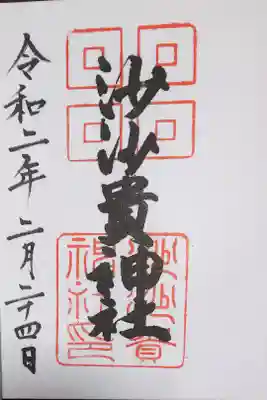 沙沙貴神社
令和二年 二月二十四日
沙沙貴
神社印